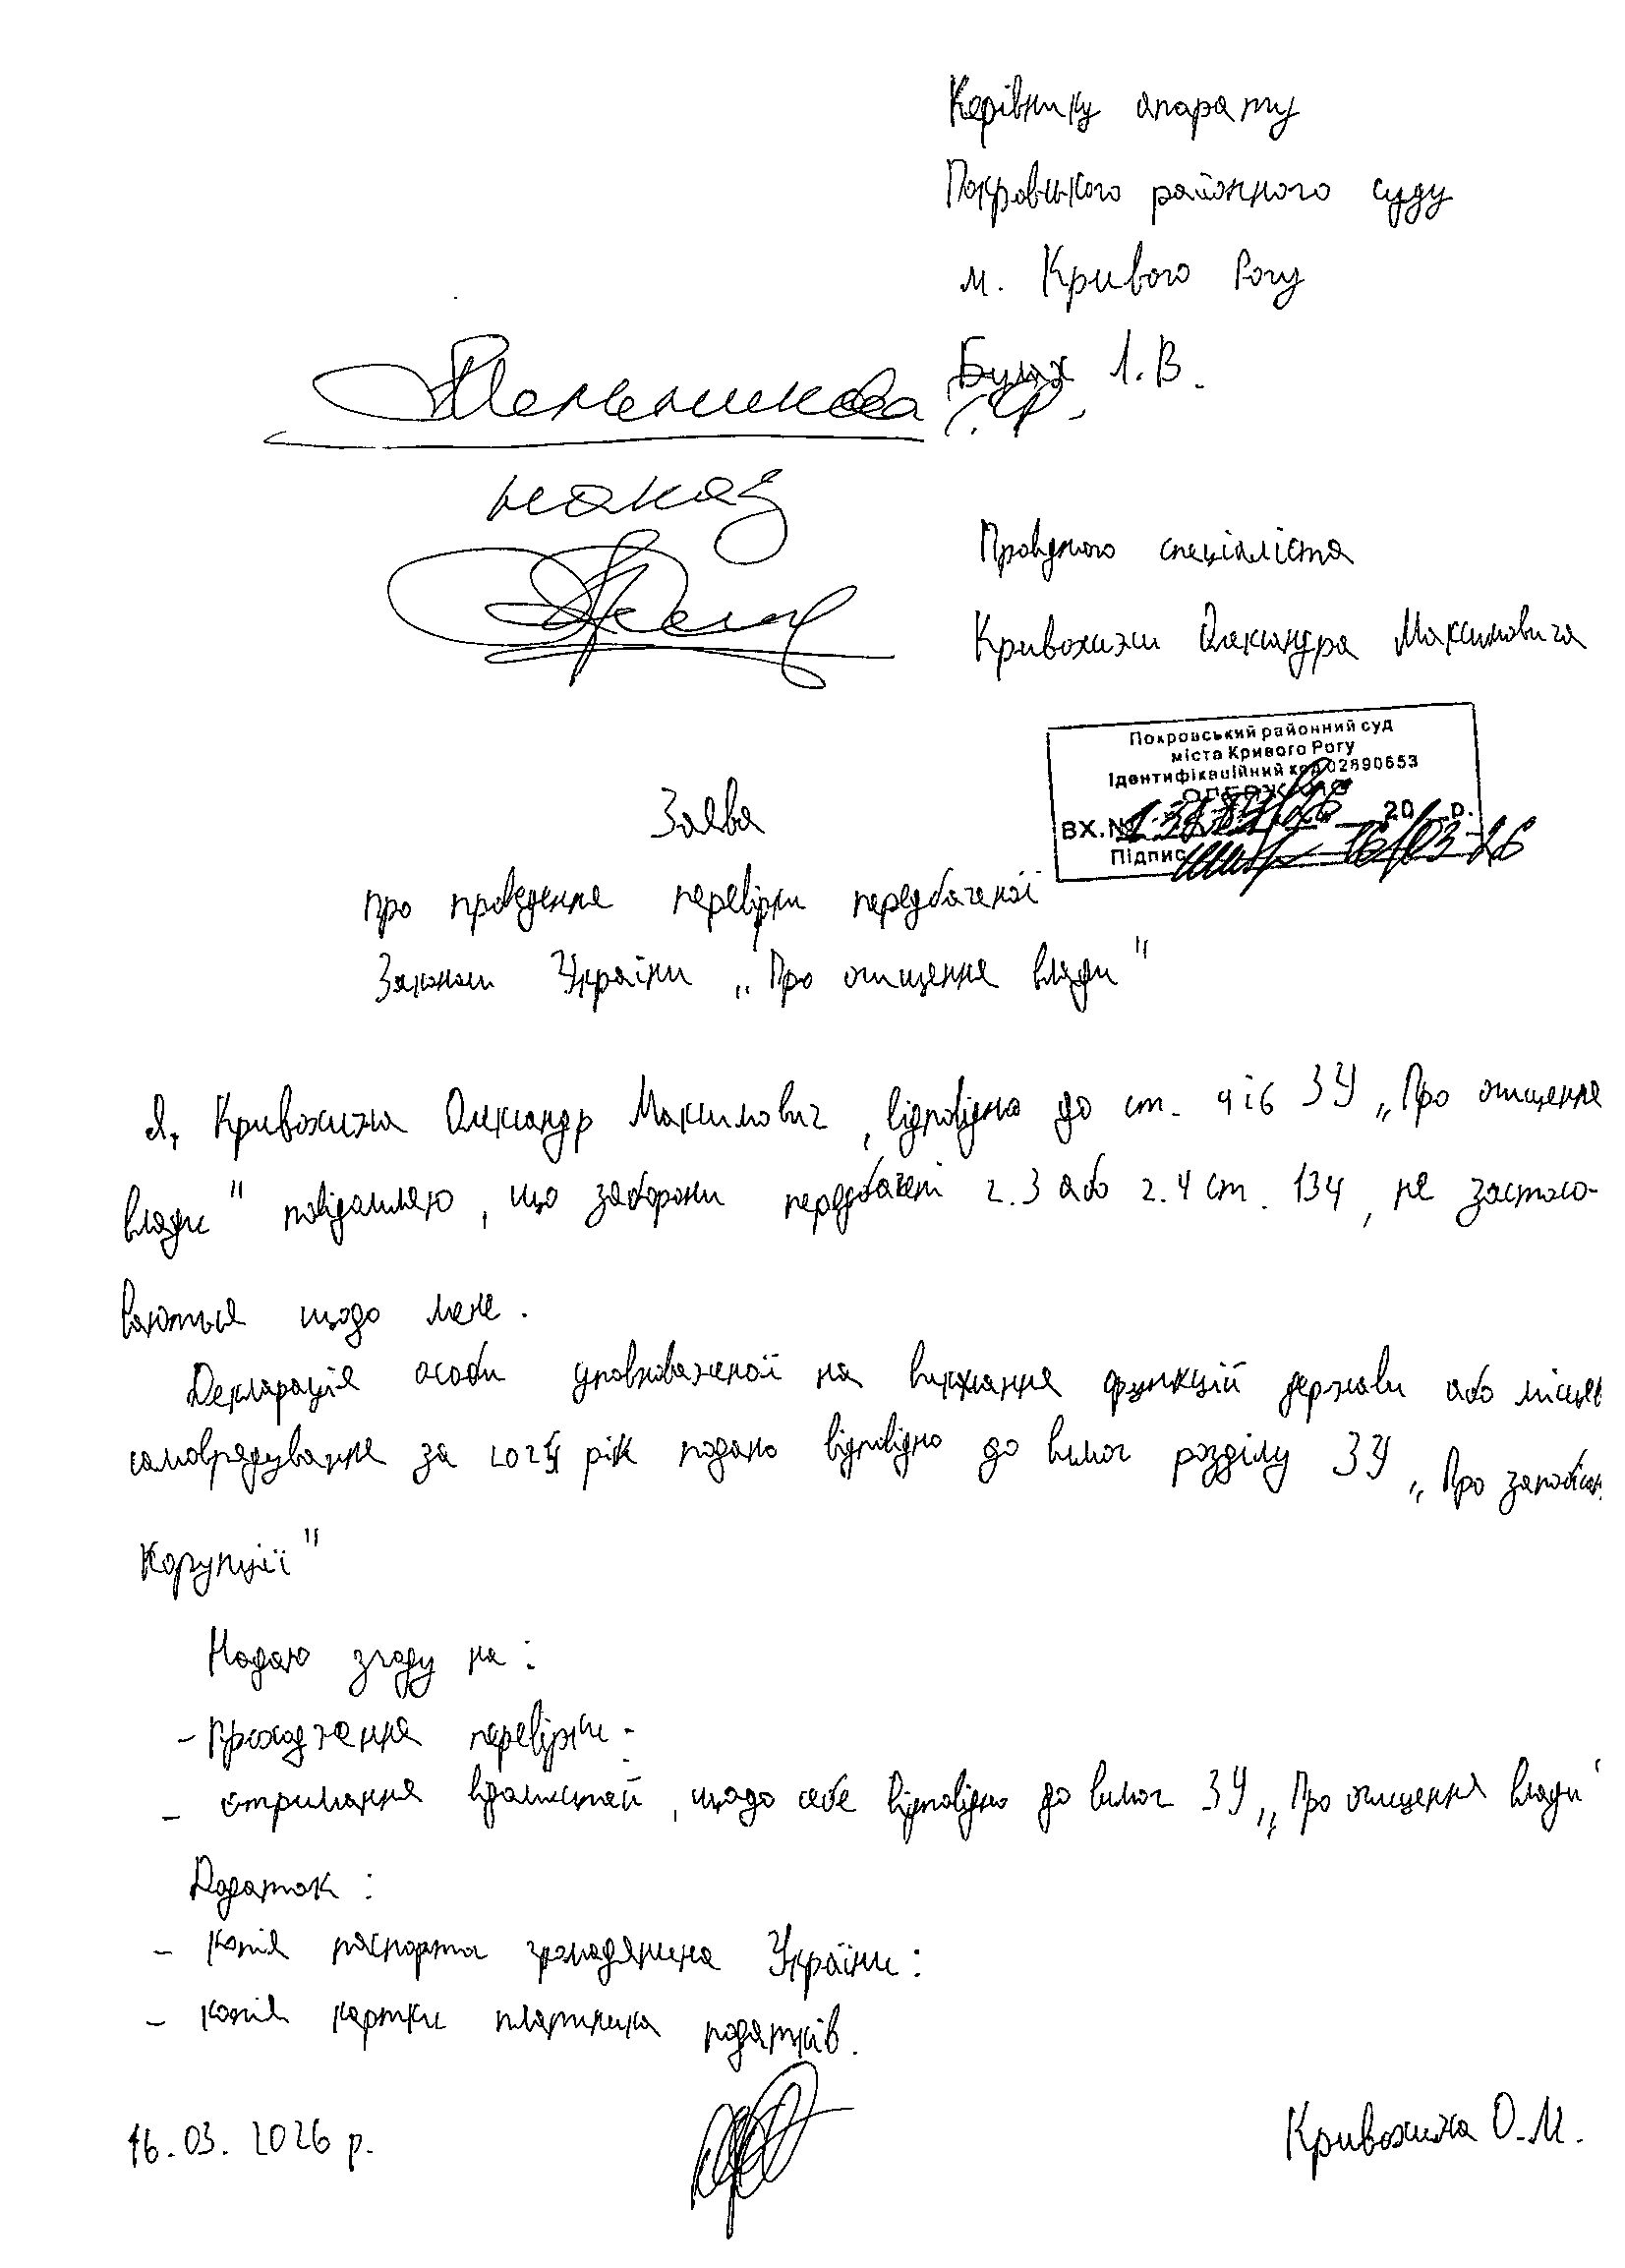 Керівнику апарату
Покровського районного суду
м. Кривого Рогу
І.В.
Мельникова
наказ
Провідного спеціаліста
Кривохижи Олександра Максимовича
Покровський районний суд
міста Кривого Рогу
Ідентифікаційний код 02890653
ОДЕРЖАНО
ВХ.№ 20 р.
Підпис 16/03 26
Заява
про проведення перевірки передбаченої
Законом України „Про очищення влади"
Я, Кривохижа Олександр Максимович, відповідно до ст. 4 і 6 ЗУ „Про очищення
влади" повідомляю, що заборони передбачені ч.3 або ч.4 ст. 134, не застосо-
вуються щодо мене.
Декларація особи уповноваженої на виконання функцій держави або місцев
самоврядування за рік подано відповідно до вимог розділу ЗУ „Про запобіган
Корупції"
Надаю згоду на:
- Проходження перевірки.
- отримання відомостей, щодо себе відповідно до вимог ЗУ „Про очищення влади"
Додаток:
- копія паспорта громадянина України:
- копія картки платника податків.
16.03.2026 р.
Кривохижа О.М.